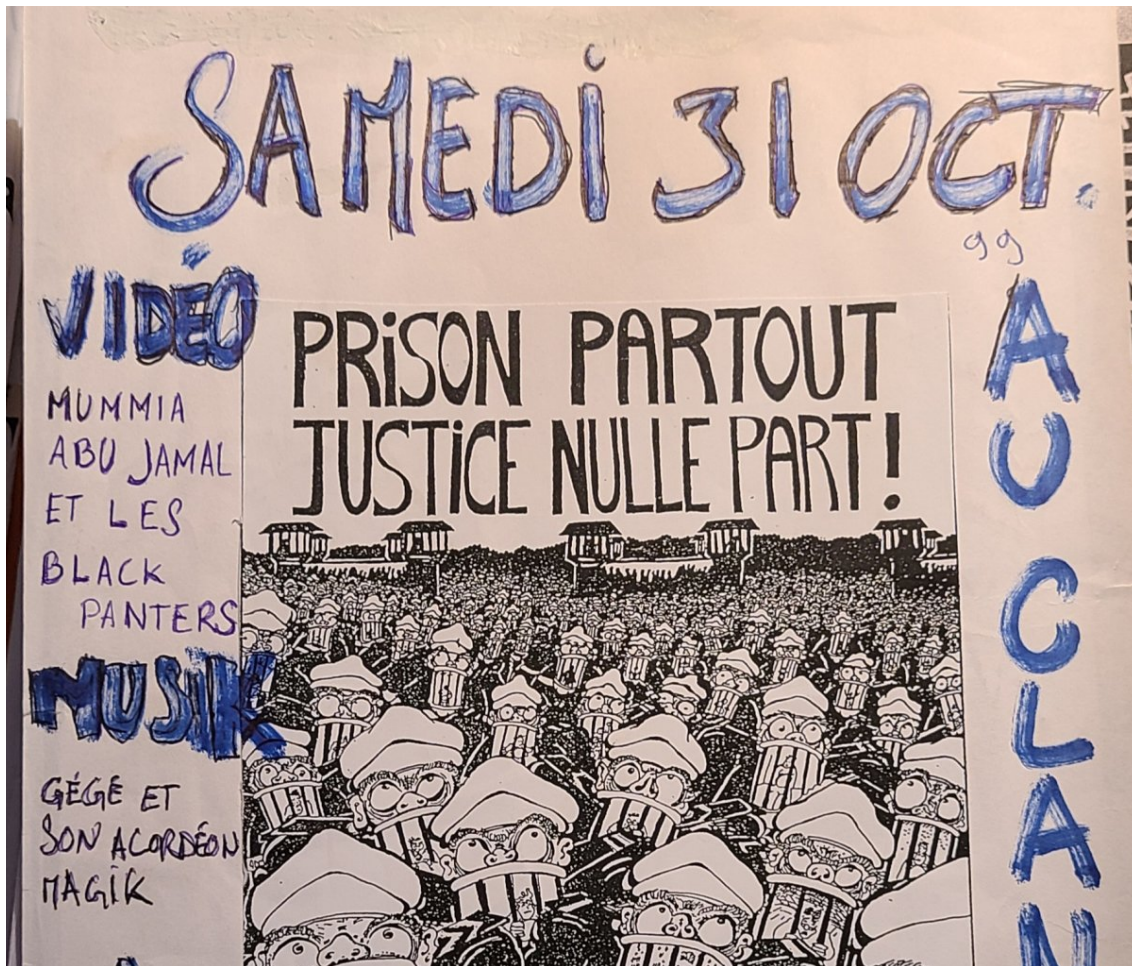 SAMEDI 31 OCT.
99
VIDÉO
MUMMIA
ABU JAMAL
ET LES
BLACK
PANTERS
MUSIK
GÉGÉ ET
SON ACORDÉON
MAGIK
PRISON PARTOUT
JUSTICE NULLE PART!
AU CLAN